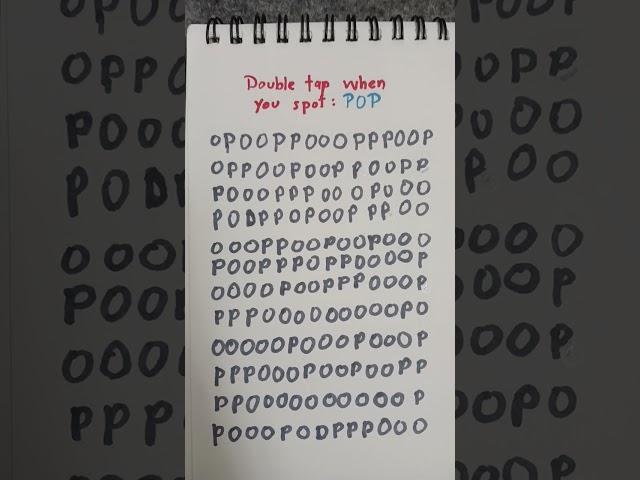 Double tap when
you spot: POP
OPOOPPOOOPPPOOP
OPPOOPOOPPOOPP
POOOPPPOOOPOOO
PODPPOPOOPPPOO
OOOPPOOPOOPOOO
POOPPPOPPOOOOP
OOOOPOOPPPOOOP
PPPOOOOOOOOOPO
OOOOOPOOOPOOOP
PPPOOOPOOPOOPP
PPOOOOOOOOOOP
POOOPODPPPOOO